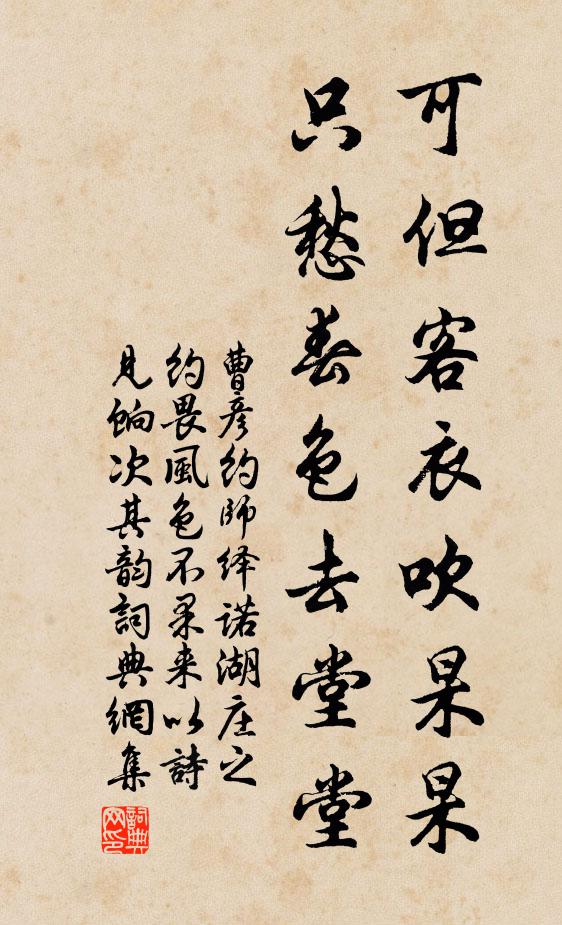 可但客衣吹杲杲
只愁春色去堂堂
曹彦约師绎诺湖庄之
约畏風色不果来以詩
見餉次其韵詞典網集
詞典
网印